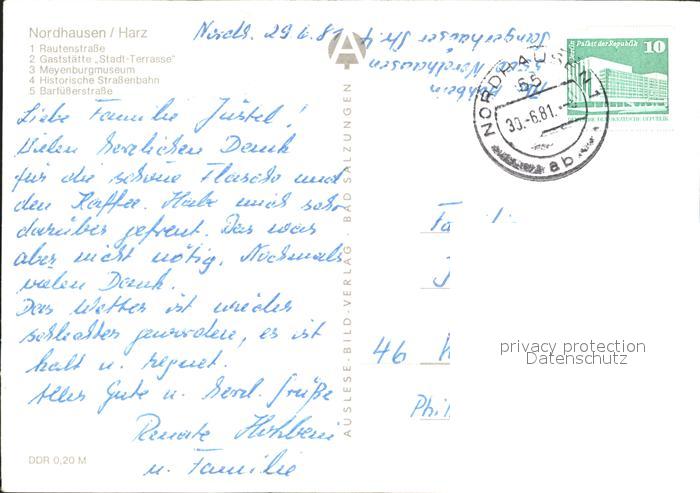 Nordhausen / Harz
1 Rautenstraße
2 Gaststätte „Stadt-Terrasse"
3 Meyenburgmuseum
4 Historische Straßenbahn
5 Barfüßerstraße
Nordh. 29.6.81
Liebe Familie Jüstel!
Vielen herzlichen Dank
für die schöne Flasche und
den Kaffee. Habe mich sehr
darüber gefreut. Das war
aber nicht nötig. Nochmals
vielen Dank.
Das Wetter ist wieder
schlechter geworden, es ist
kalt u. regnet.
Alles Gute u. herzl. Grüße
Renate
u. Familie
DDR 0,20 M
AUSLESE-BILD-VERLAG · BAD SALZUNGEN
A
Sangerhäuser Str. 4
Nordhausen
Palast der Republik
10
DEUTSCHE DEMOKRATISCHE REPUBLIK
NORDHAUSEN 1
55
30.-6.81.
ab
Fa
J
46
Phil
privacy protection
Datenschutz